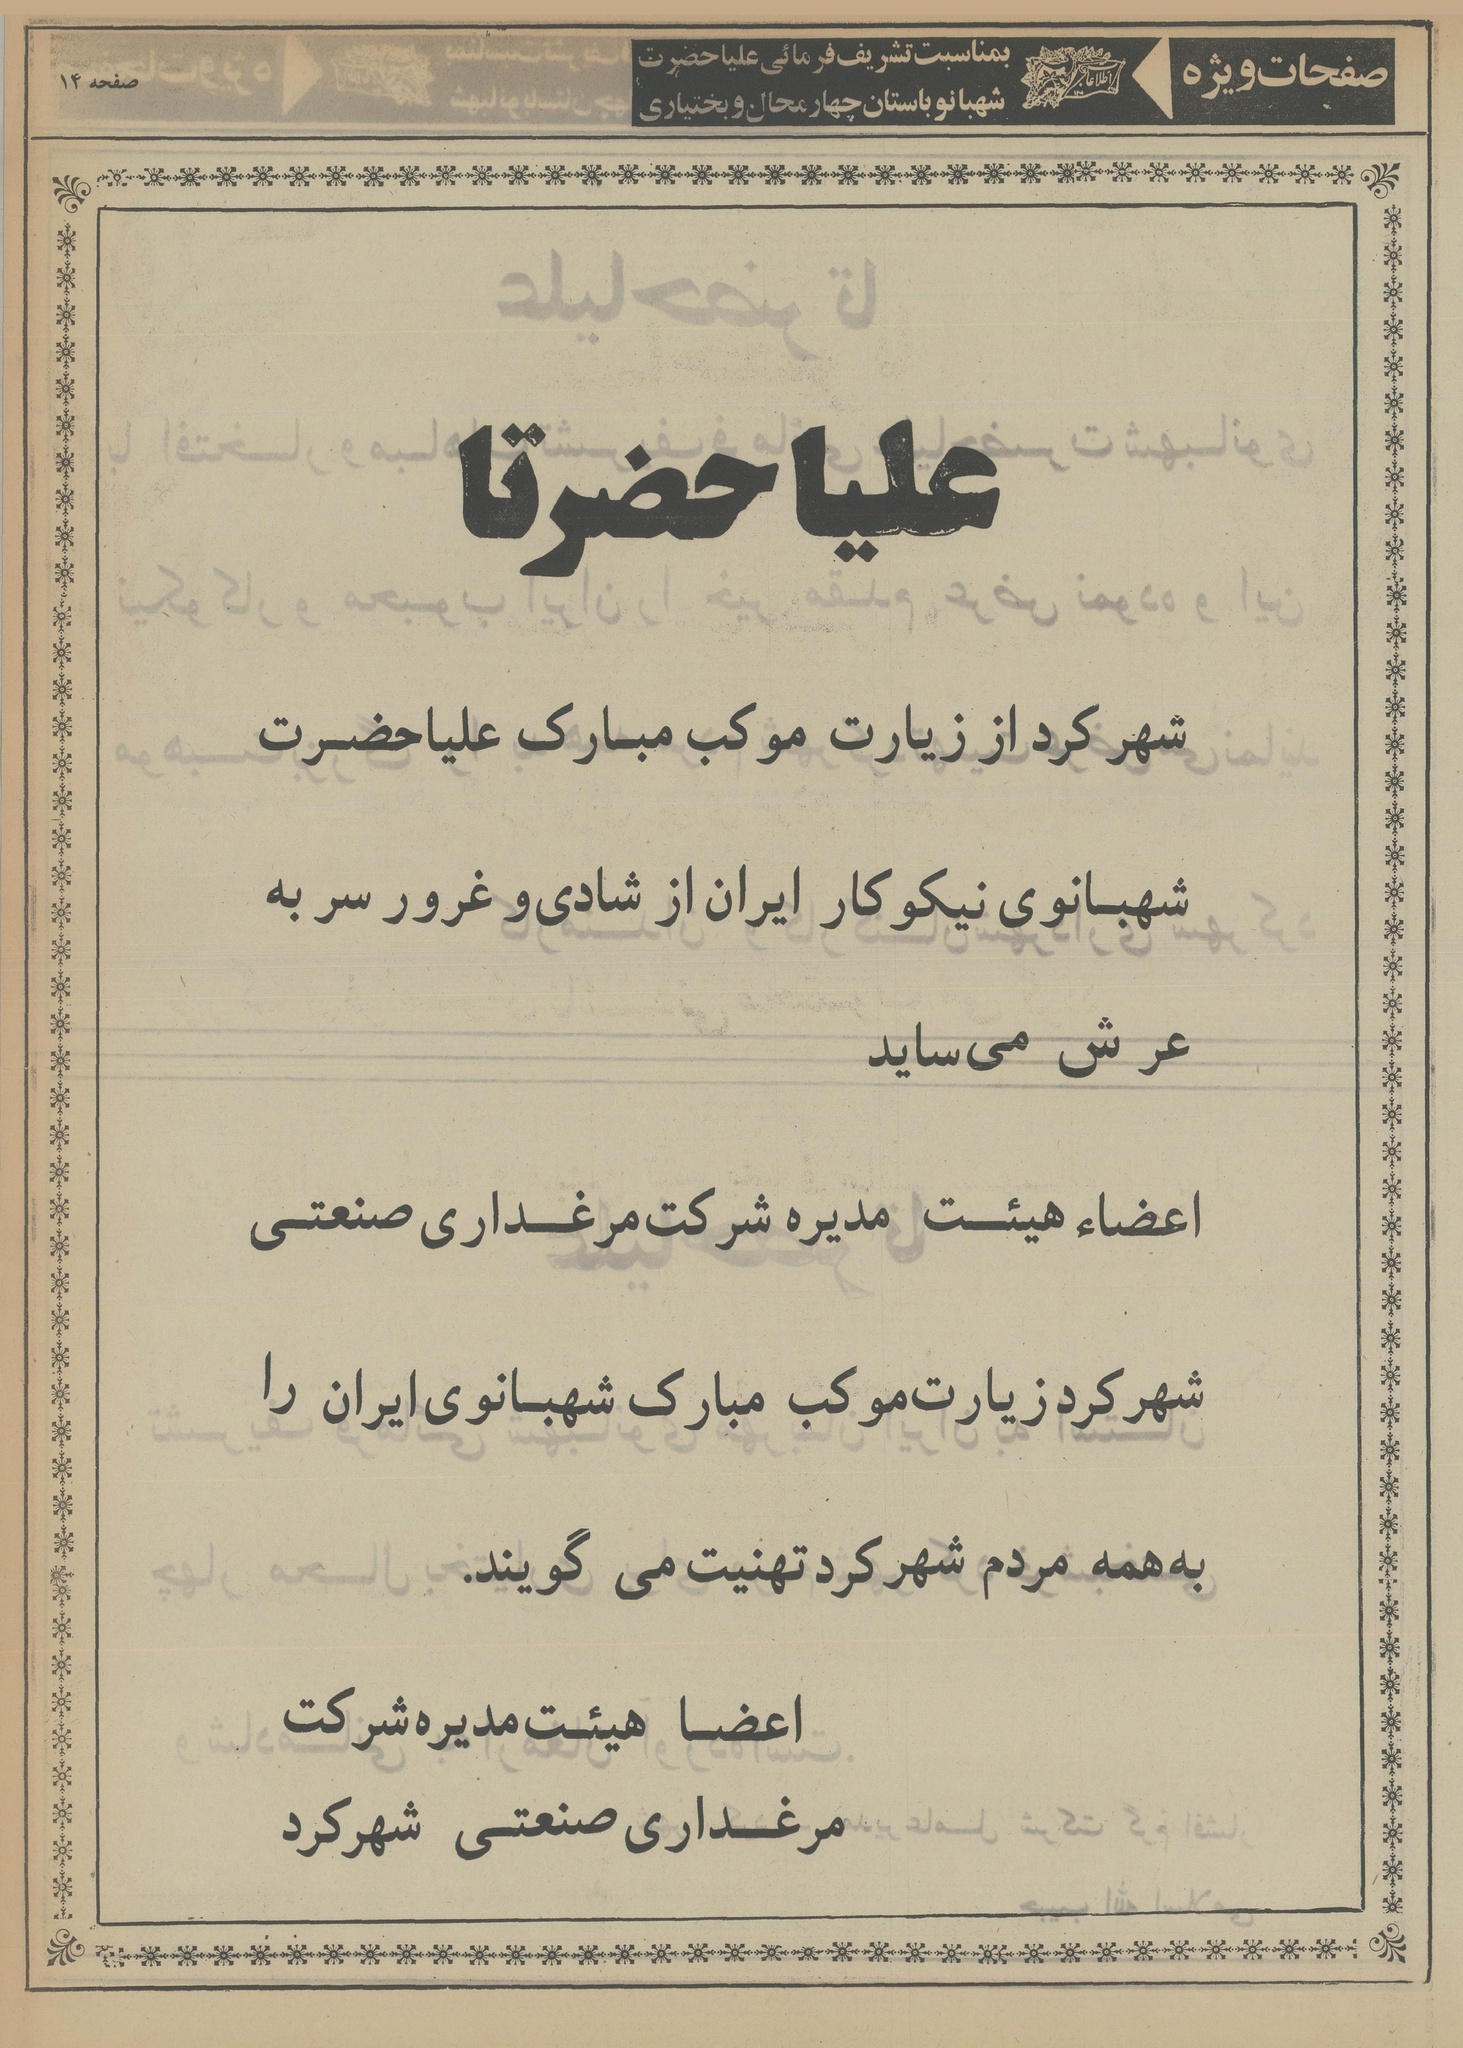 صفحات ویژه
اطلاعات
بمناسبت تشریف فرمائی علیاحضرت
شهبانو باستان چهارمحال و بختیاری
صفحه ۱۴
علیاحضرتا
شهر کرد از زیارت موکب مبارک علیاحضرت
شهبانوی نیکوکار ایران از شادی و غرور سر به
عرش می‌ساید
اعضاء هیئت مدیره شرکت مرغداری صنعتی
شهر کرد زیارت موکب مبارک شهبانوی ایران را
به همه مردم شهر کرد تهنیت می گویند.
اعضا هیئت مدیره شرکت
مرغداری صنعتی شهر کرد